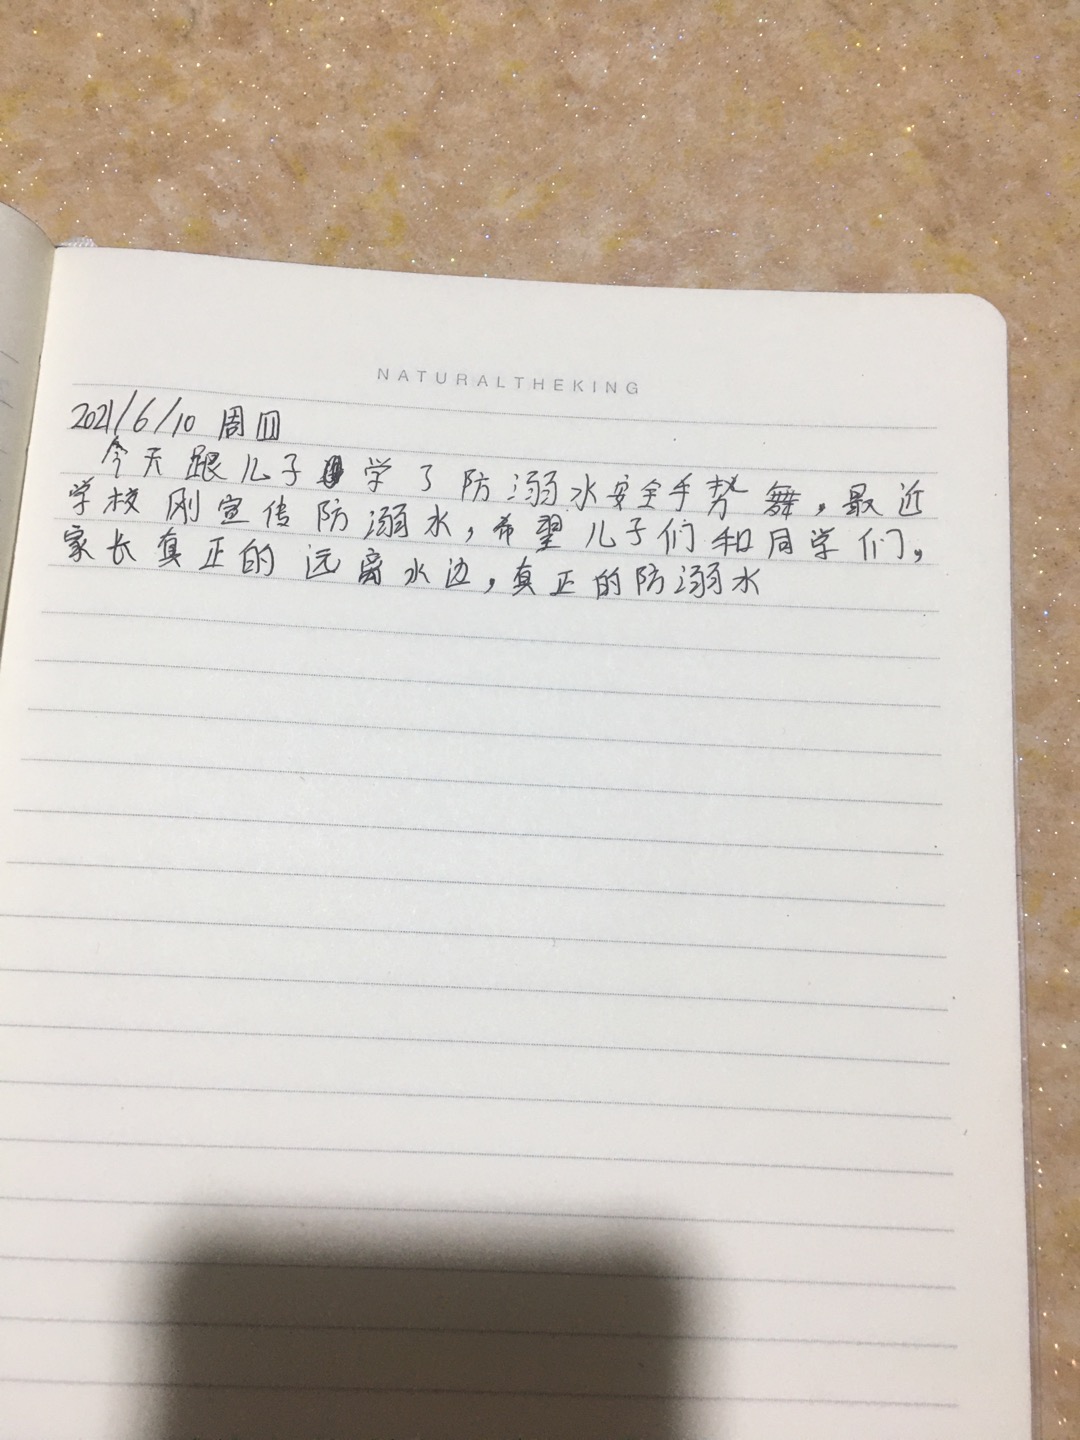 NATURALTHEKING
2021/6/10 周四
今天跟儿子学了防溺水安全手势舞，最近
学校刚宣传防溺水，希望儿子们和同学们，
家长真正的远离水边，真正的防溺水